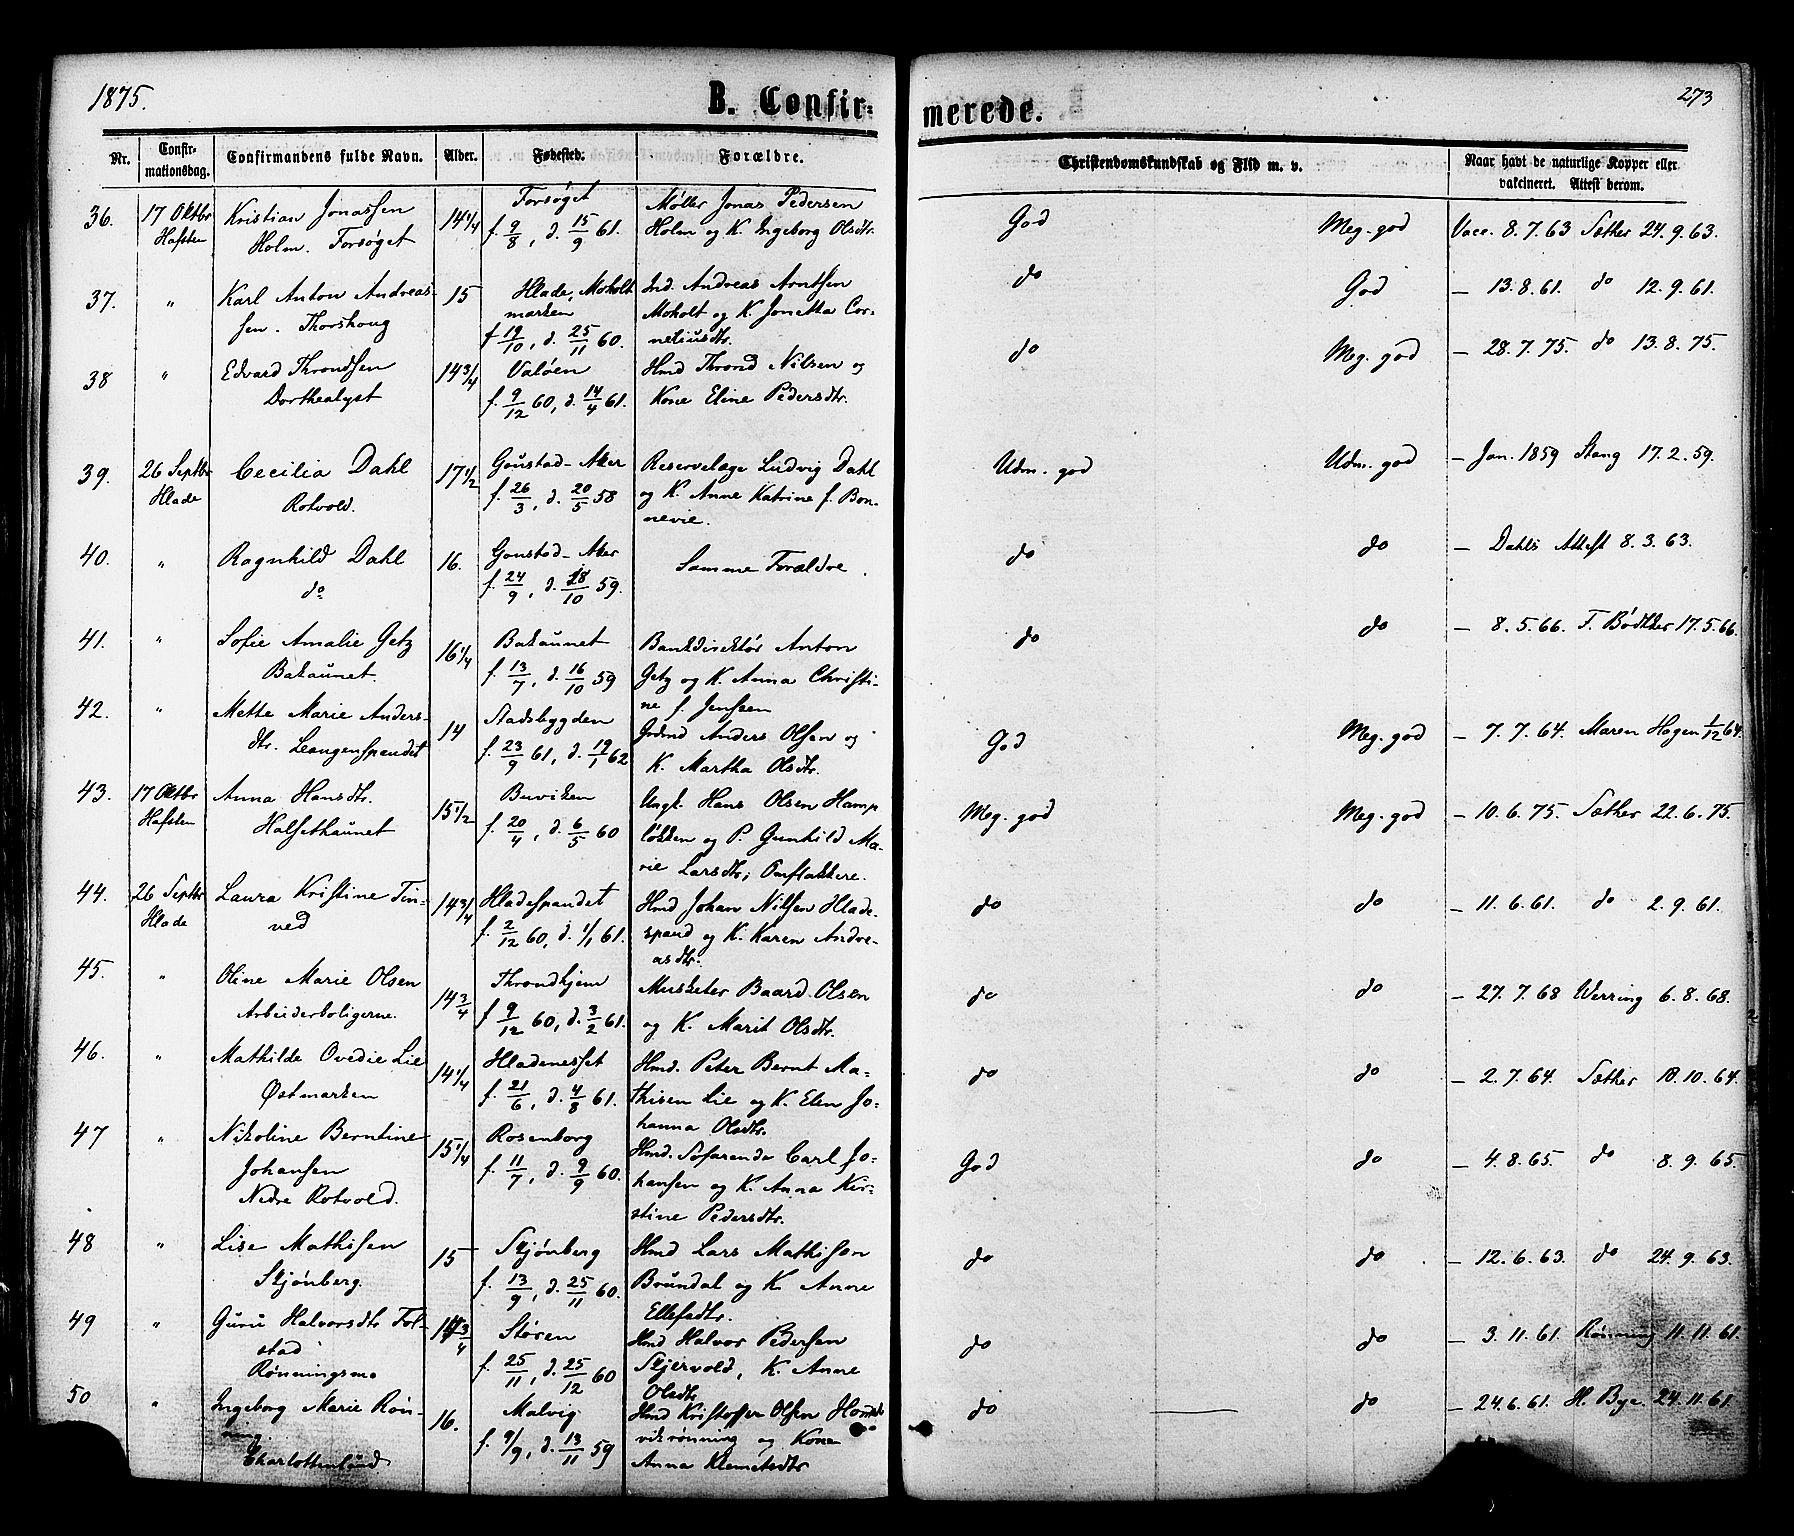 1875.
B. Confirmerede.
273
Nr. Confirmationsdag. Confirmandens fulde Navn. Alder. Fødested. Forældre. Christendomskundskab og Flid m. v. Naar havt de naturlige Kopper eller vakcineret. Attest derom.
36. 17 Oktbr Hafsten Kristian Jonassen 14 1/4 Forsøget Møller Jonas Pedersen God Meg. god Vacc. 8.7.63 Sæther 24.9.63.
Holm. Forsøget f. 9/8, d. 15/9 61. Holm og K. Ingeborg Olsdtr.
37. " Karl Anton Andreas- 15 Hlade, Moholt Ind. Andreas Arntsen do God — 13.8.61. do 12.9.61.
sen. Thorshoug marken Moholt og K. Jonetta Cor-
f. 19/10, d. 25/11 60. neliusdtr.
38 " Edvard Throndsen 14 3/4 Valøen Hmd Thrond Nilsen og do Meg. god — 28.7.75. do 13.8.75.
Dorthealyst f. 9/12 60, d. 14/4 61. Kone Eline Pedersdtr.
39. 26 Septbr Hlade Cecilia Dahl 17 1/2 Gaustad-Aker Reservelæge Ludvig Dahl Udm. god Udm. god — Jan. 1859 Stang 17.2.59.
Rotvold. f. 26/3, d. 20/5 58 og K. Anne Katrine f. Bon-
nevie.
40. " Ragnhild Dahl 16. Goustad-Aker Samme Forældre. do do — Dahls Attest 8.3.63.
do f. 24/9, d. 28/10 59.
41. " Sofie Amalie Getz 16 1/4 Bakaunet Bankdirektør Anton do do — 8.5.66. F. Bødtker 17.5.66.
Bakaunet. f. 13/7, d. 16/10 59 Getz og K. Anna Christi-
ne f. Jenssen
42. " Mette Marie Anders- 14 Stadsbygden Grdmd Anders Olsen og God Meg. god — 7.7.64. Maren Hagen 1/12 64.
dtr. Leangenspandet f. 23/9 61, d. 19/1 62 K. Martha Olsdtr.
43. 17 Oktbr Hafsten Anna Hansdtr. 15 1/2 Buviken Ungk. Hans Olsen Hamp Meg. god Meg. god — 10.6.75. Sæther 22.6.75.
Halsethaunet f. 20/4, d. 6/5 60 løkken og P. Gunhild Ma-
rie Larsdtr; Omflakkere.
44. 26 Septbr Hlade Laura Kristine Tin- 14 3/4 Hladespandet Hmd Johan Nilsen Hlade- do do — 11.6.61. do 2.9.61.
ved f. 2/12 60, d. 1/1 61. spand og K. Karen Andre-
asdtr.
45. " Oline Marie Olsen 14 3/4 Throndhjem Musketer Baard Olsen do do — 27.7.68 Werring 6.8.68.
Arbeiderboligerne. f. 9/12 60, d. 3/2 61. og K. Marit Olsdtr.
46. " Mathilde Ovedie Lie 14 1/4 Hladenesset Hmd. Peter Bernt Ma- do do — 2.7.64. Sæther 18.10.64.
Østmarken f. 21/6, d. 4/8 61. thisen Lie og K. Elen Jo-
hanna Olsdtr.
47 " Nikoline Berntine 15 1/4 Rosenborg Hmd. Sofarende Carl Jo- God do — 4.8.65. do 8.9.65.
Johansen f. 11/7, d. 9/9 60. hansen og K. Anna Kir-
Nedre Rotvold. stine Pedersdtr.
48 " Lise Mathissen 15 Skjønberg Hmd Lars Mathisen do do — 12.6.63. do 24.9.63.
Skjønberg. f. 13/9, d. 25/11 60. Brundal og K. Anne
Ellefsdtr.
49 " Guru Halvorsdtr Fol- 14 3/4 Støren Hmd Halvor Pedersen do do — 3.11.61. Rønning 11.11.61.
stad f. 25/11, d. 25/12 60 Skjervold, K. Anne
Rønningsmo Olsdtr
50 " Ingeborg Marie Røn- 16. Malvig Hmd Kristoffer Olsen do do — 24.6.61. H. Bye. 24.11.61.
ning. f. 9/9, d. 13/11 59 vikrønning og Kone
Charlottenlund Anna Klemetsdtr